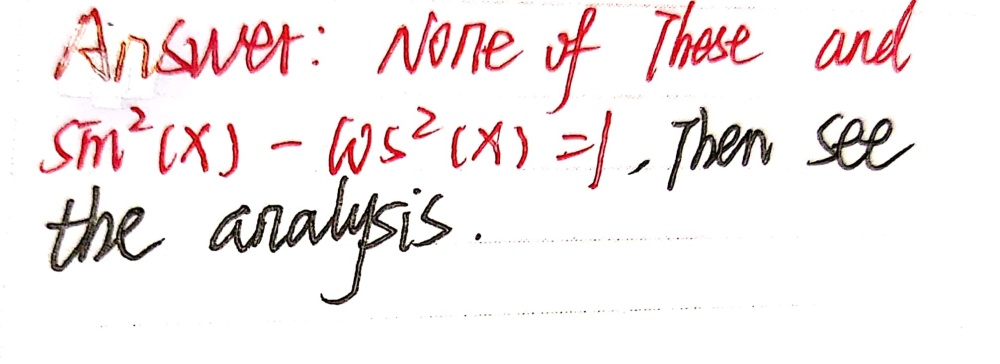 Answer: None of These and
sin²(x) - cos²(x) =1, Then see
the analysis.